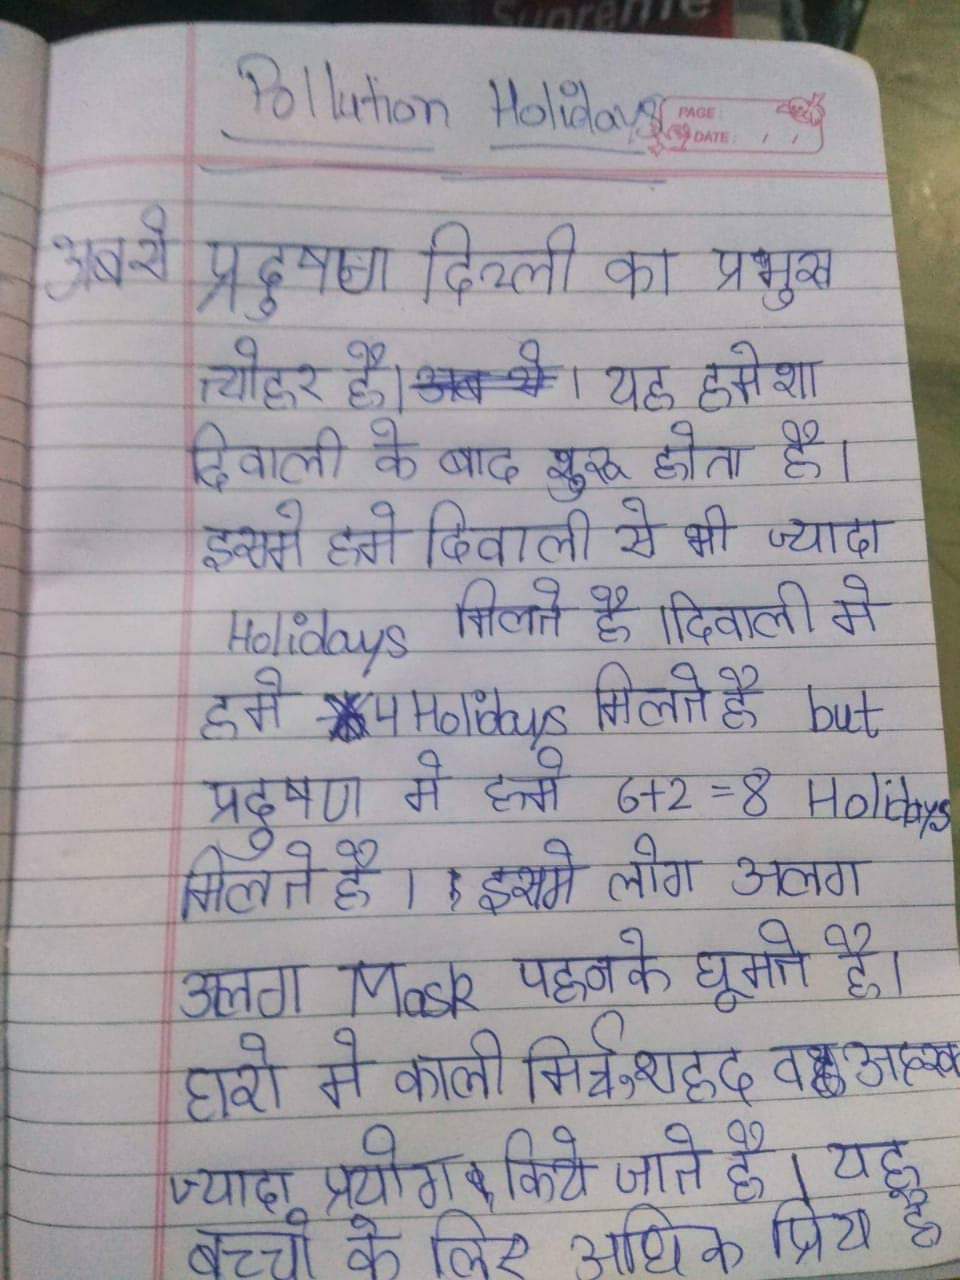 Supreme
Pollution Holidays
PAGE:
DATE: / /
अबसे प्रदुषण दिल्ली का प्रमुख
त्योहर है। अब से । यह हमेशा
दिवाली के बाद शुरू होता है।
इसमे हमे दिवाली से भी ज्यादा
Holidays मिलते है ।दिवाली मे
हमे 4 Holidays मिलते है but
प्रदुषण मे हमे 6+2=8 Holidays
मिलते है। । इसमे लोग अलग
अलग Mask पहनके घूमते है।
घरो मे काली मिर्च, शहद व अदरख
ज्यादा प्रयोग किये जाते है । यह
बच्चो के लिए अधिक प्रिय है